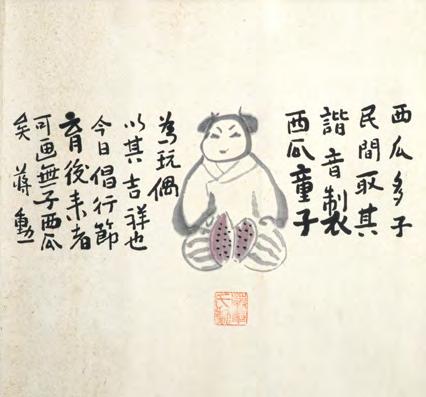 西瓜多子
民間取其
諧音製
西瓜童子
為玩偶
以其吉祥也
今日倡行節
育後来者
可画無子西瓜
矣 蔣勳